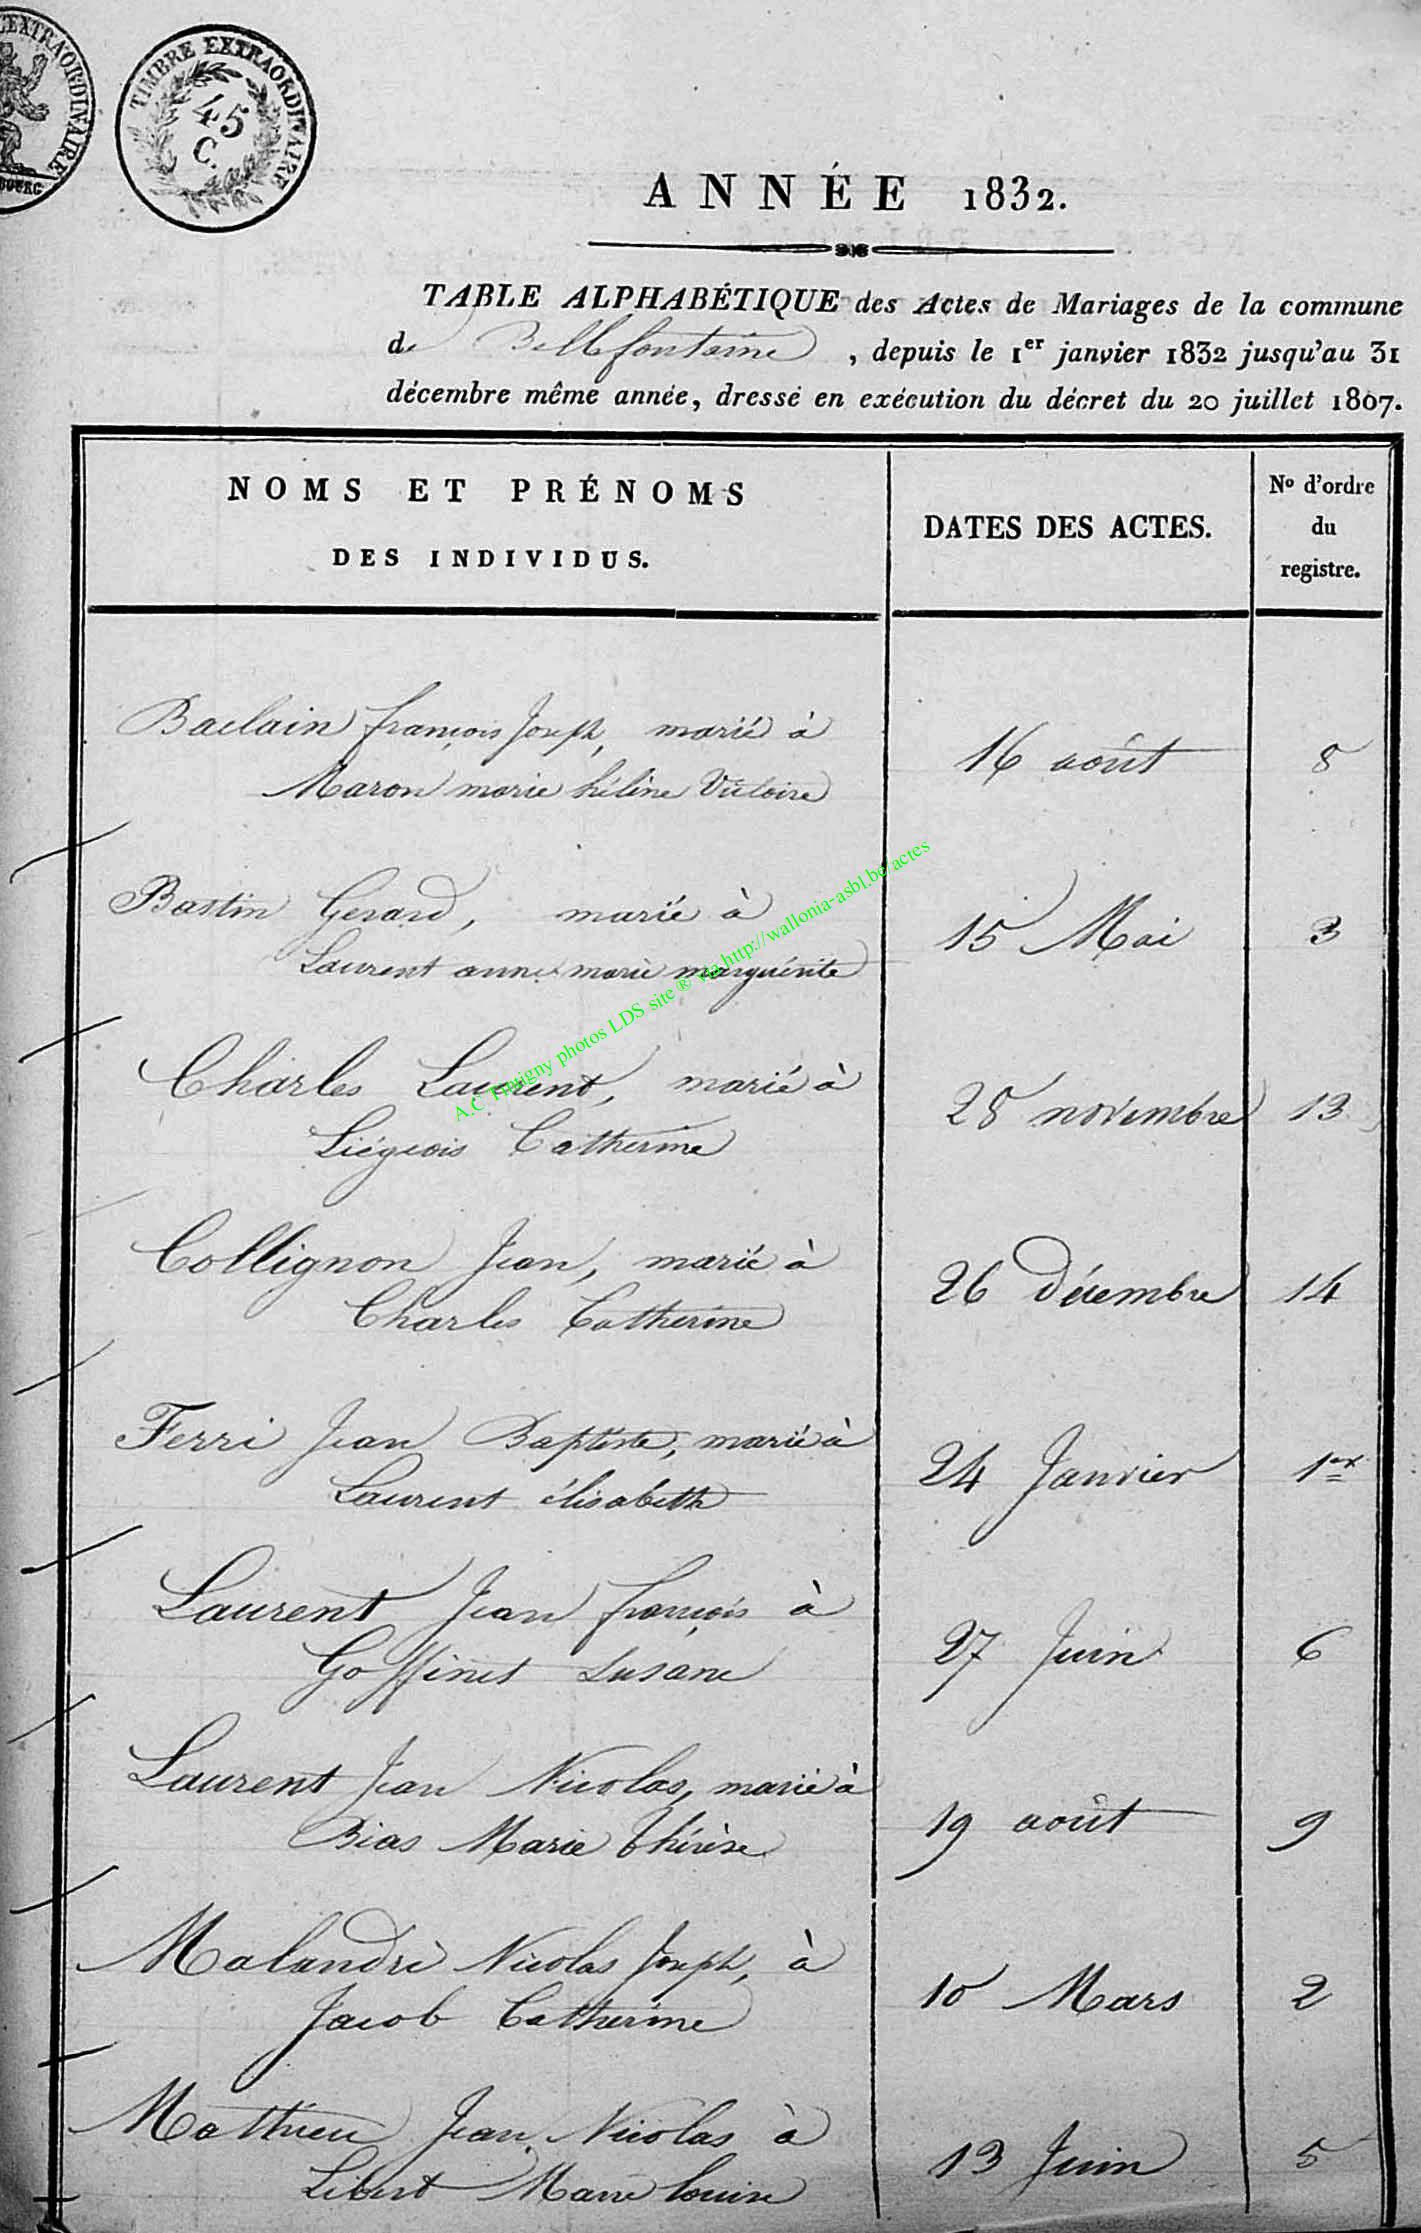 L'EXTRAORDINAIRE
TIMBRE EXTRAORDINAIRE
45
C.
ANNÉE 1832.
TABLE ALPHABÉTIQUE des Actes de Mariages de la commune
de Bellefontaine, depuis le 1er janvier 1832 jusqu'au 31
décembre même année, dressé en exécution du décret du 20 juillet 1807.
NOMS ET PRÉNOMS
DES INDIVIDUS.
DATES DES ACTES.
No d'ordre
du
registre.
Baclain françois Joseph, marié à
Maron marie hélène Victoire
16 août 8
Bastin Gerard, marié à
Laurent anne marie marguérite
15 Mai 3
Charles Laurent, marié à
Liégeois Catherine
28 novembre 13
Collignon Jean, marié à
Charles Catherine
26 décembre 14
Ferri Jean Baptiste, marié à
Laurent élisabeth
24 Janvier 1er
Laurent Jean françois à
Goffinet Susane
27 Juin 6
Laurent Jean Nicolas, marié à
Bias Marie thérèse
19 août 9
Malandri Nicolas Joseph, à
Jacob Catherine
10 Mars 2
Mathieu Jean Nicolas à
Libert Marie louise
13 Juin 5
A.C Tintigny photos LDS site ® via http://wallonia-asbl.be/actes